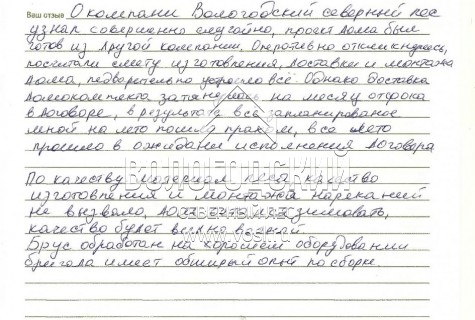 Ваш отзыв О компании Вологодский северный лес
узнал совершенно случайно, проект дома был
готов из другой компании. Оперативно откликнулись,
посчитали смету изготовления, доставки и монтажа
дома, предварительно устроило всё. Однако доставка
домокомплекта затянулась на месяц от срока
в договоре, в результате все запланированое
мной на лето пошло прахом, все лето
прошло в ожидании исполнения договора
По качеству материала леса, качество
изготовления и монтажа нареканий
не вызвало,
качество будет видно весной.
Брус обработан на хорошем оборудовании
бригада имеет обширый опыт по сборке.
ВОЛОГОДСКИЙ